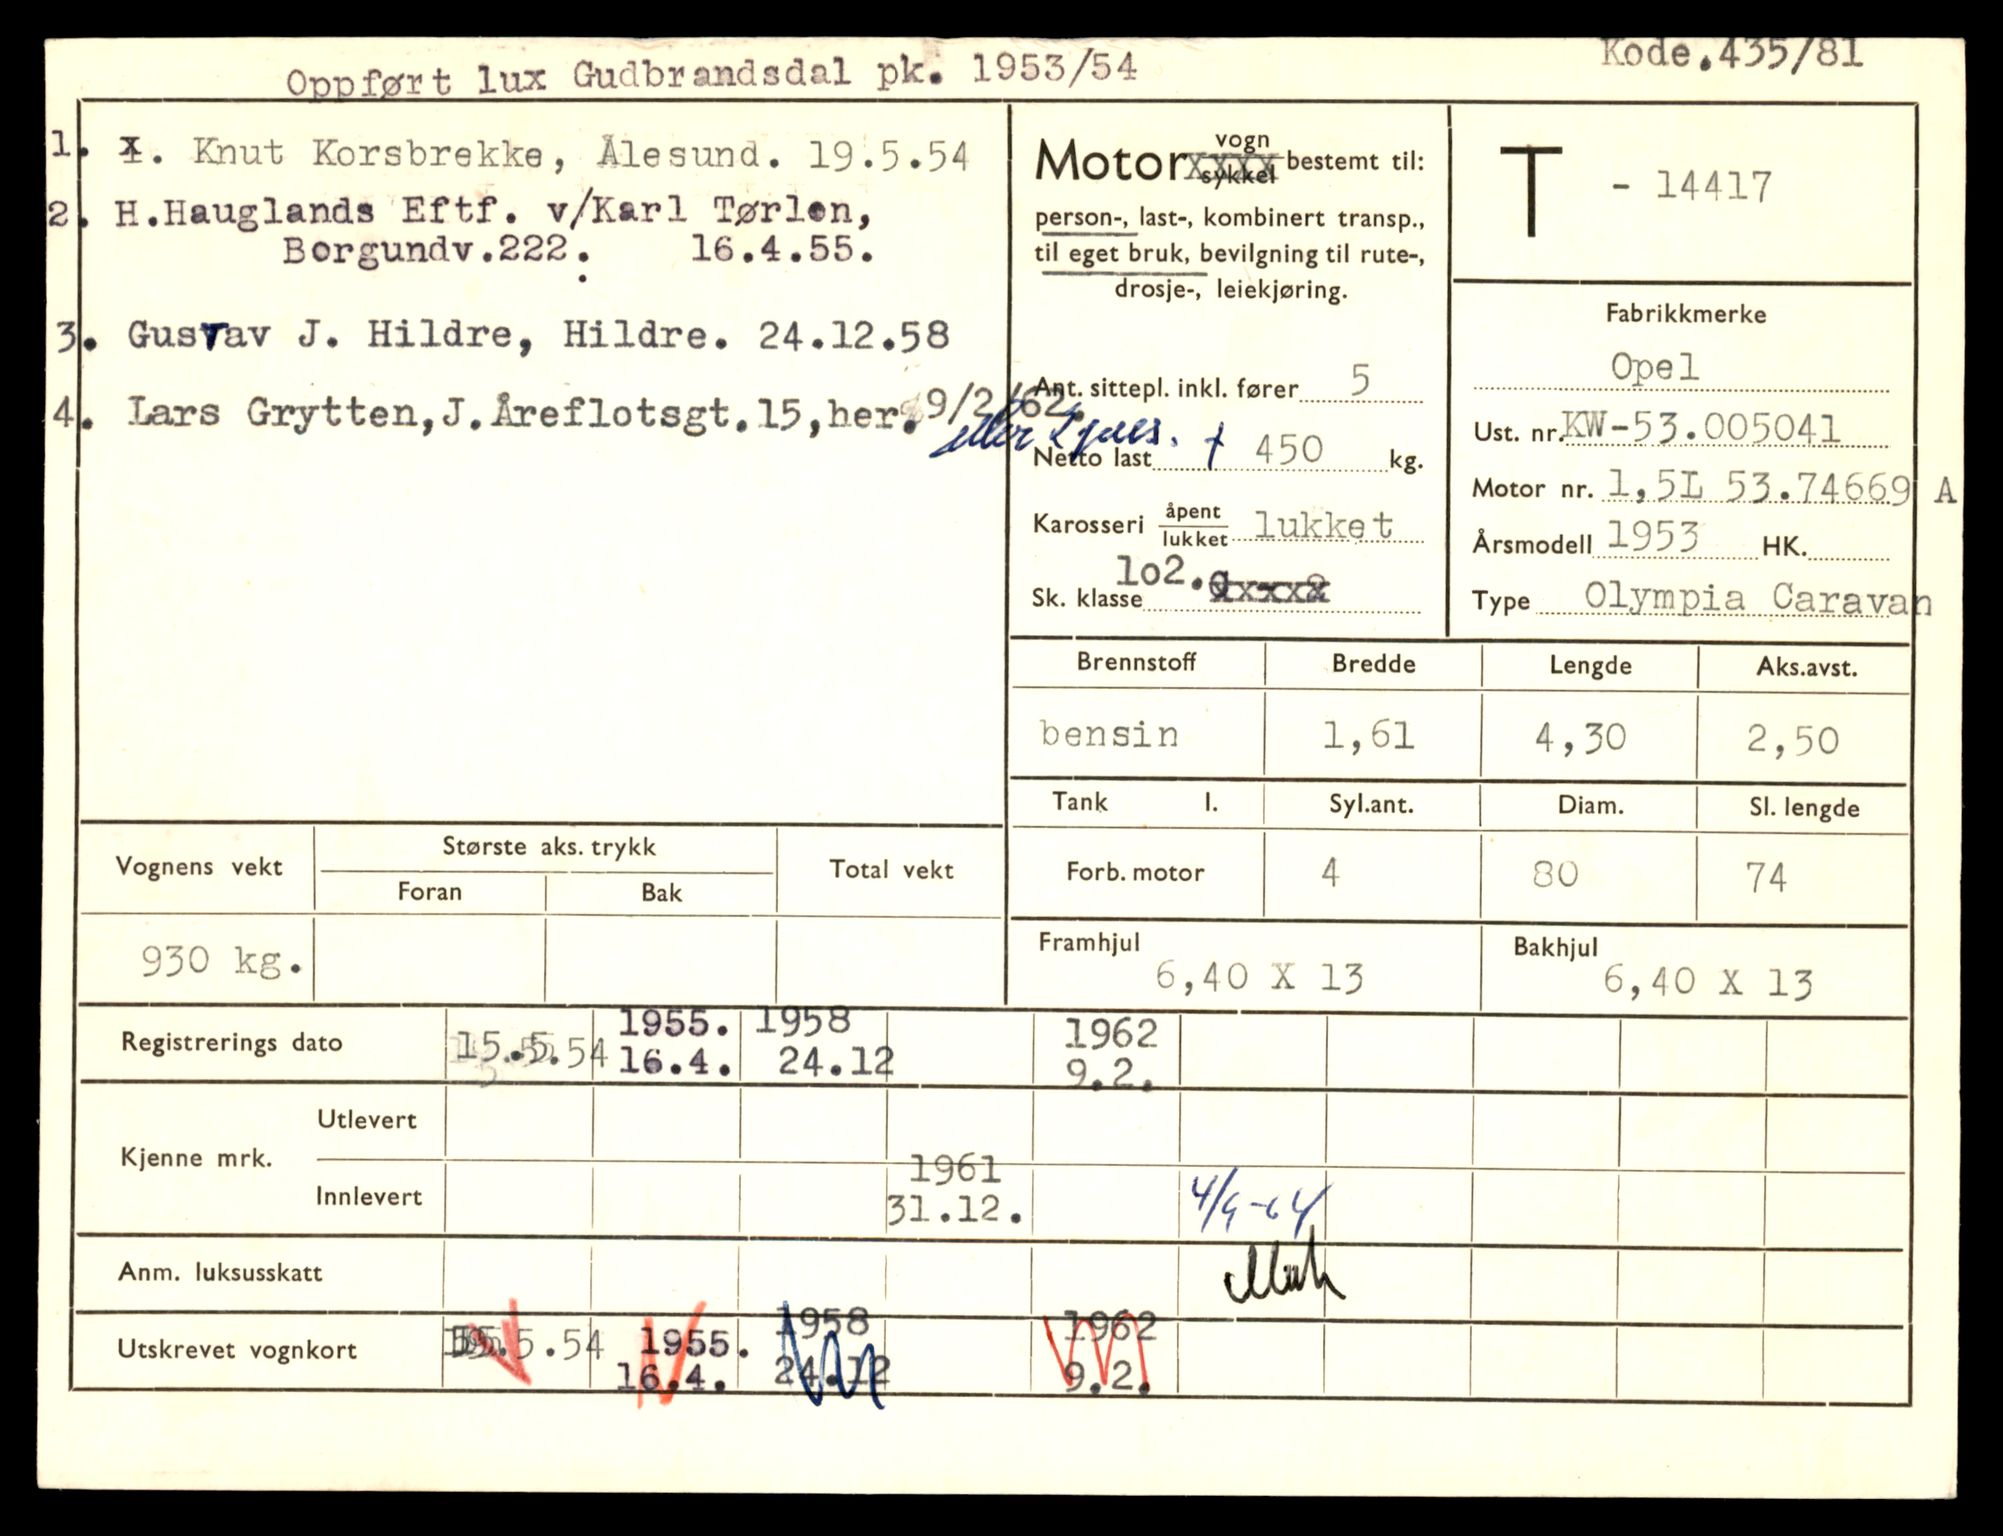 Oppført lux Gudbrandsdal pk. 1953/54
Kode.435/81
1. Knut Korsbrekke, Ålesund. 19.5.54
2. H.Hauglands Eftf. v/Karl Tørlen,
Borgundv.222. 16.4.55.
3. Gustav J. Hildre, Hildre. 24.12.58
4. Lars Grytten,J.Åreflotsgt.15,her. 9/2/62.
eller
Motor vogn sykkel bestemt til:
person-, last-, kombinert transp.,
til eget bruk, bevilgning til rute-,
drosje-, leiekjøring.
Ant. sittepl. inkl. fører 5
Netto last 450 kg.
Karosseri åpent lukket lukket
Sk. klasse 1o2.
T - 14417
Fabrikkmerke
Opel
Ust. nr. KW-53.005041
Motor nr. 1,5L 53.74669 A
Årsmodell 1953 HK.
Type Olympia Caravan
Brennstoff Bredde Lengde Aks.avst.
bensin 1,61 4,30 2,50
Tank l. Syl.ant. Diam. Sl. lengde
Forb. motor 4 80 74
Framhjul Bakhjul
6,40 X 13 6,40 X 13
Vognens vekt Største aks. trykk Total vekt
Foran Bak
930 kg.
Registrerings dato 15.5.54 1955. 16.4. 1958 24.12 1962 9.2.
Kjenne mrk. Utlevert
Innlevert 1961 31.12. 4/9-64
Anm. luksusskatt
Utskrevet vognkort .5.54 1955. 16.4. 1958 24.12 1962 9.2.